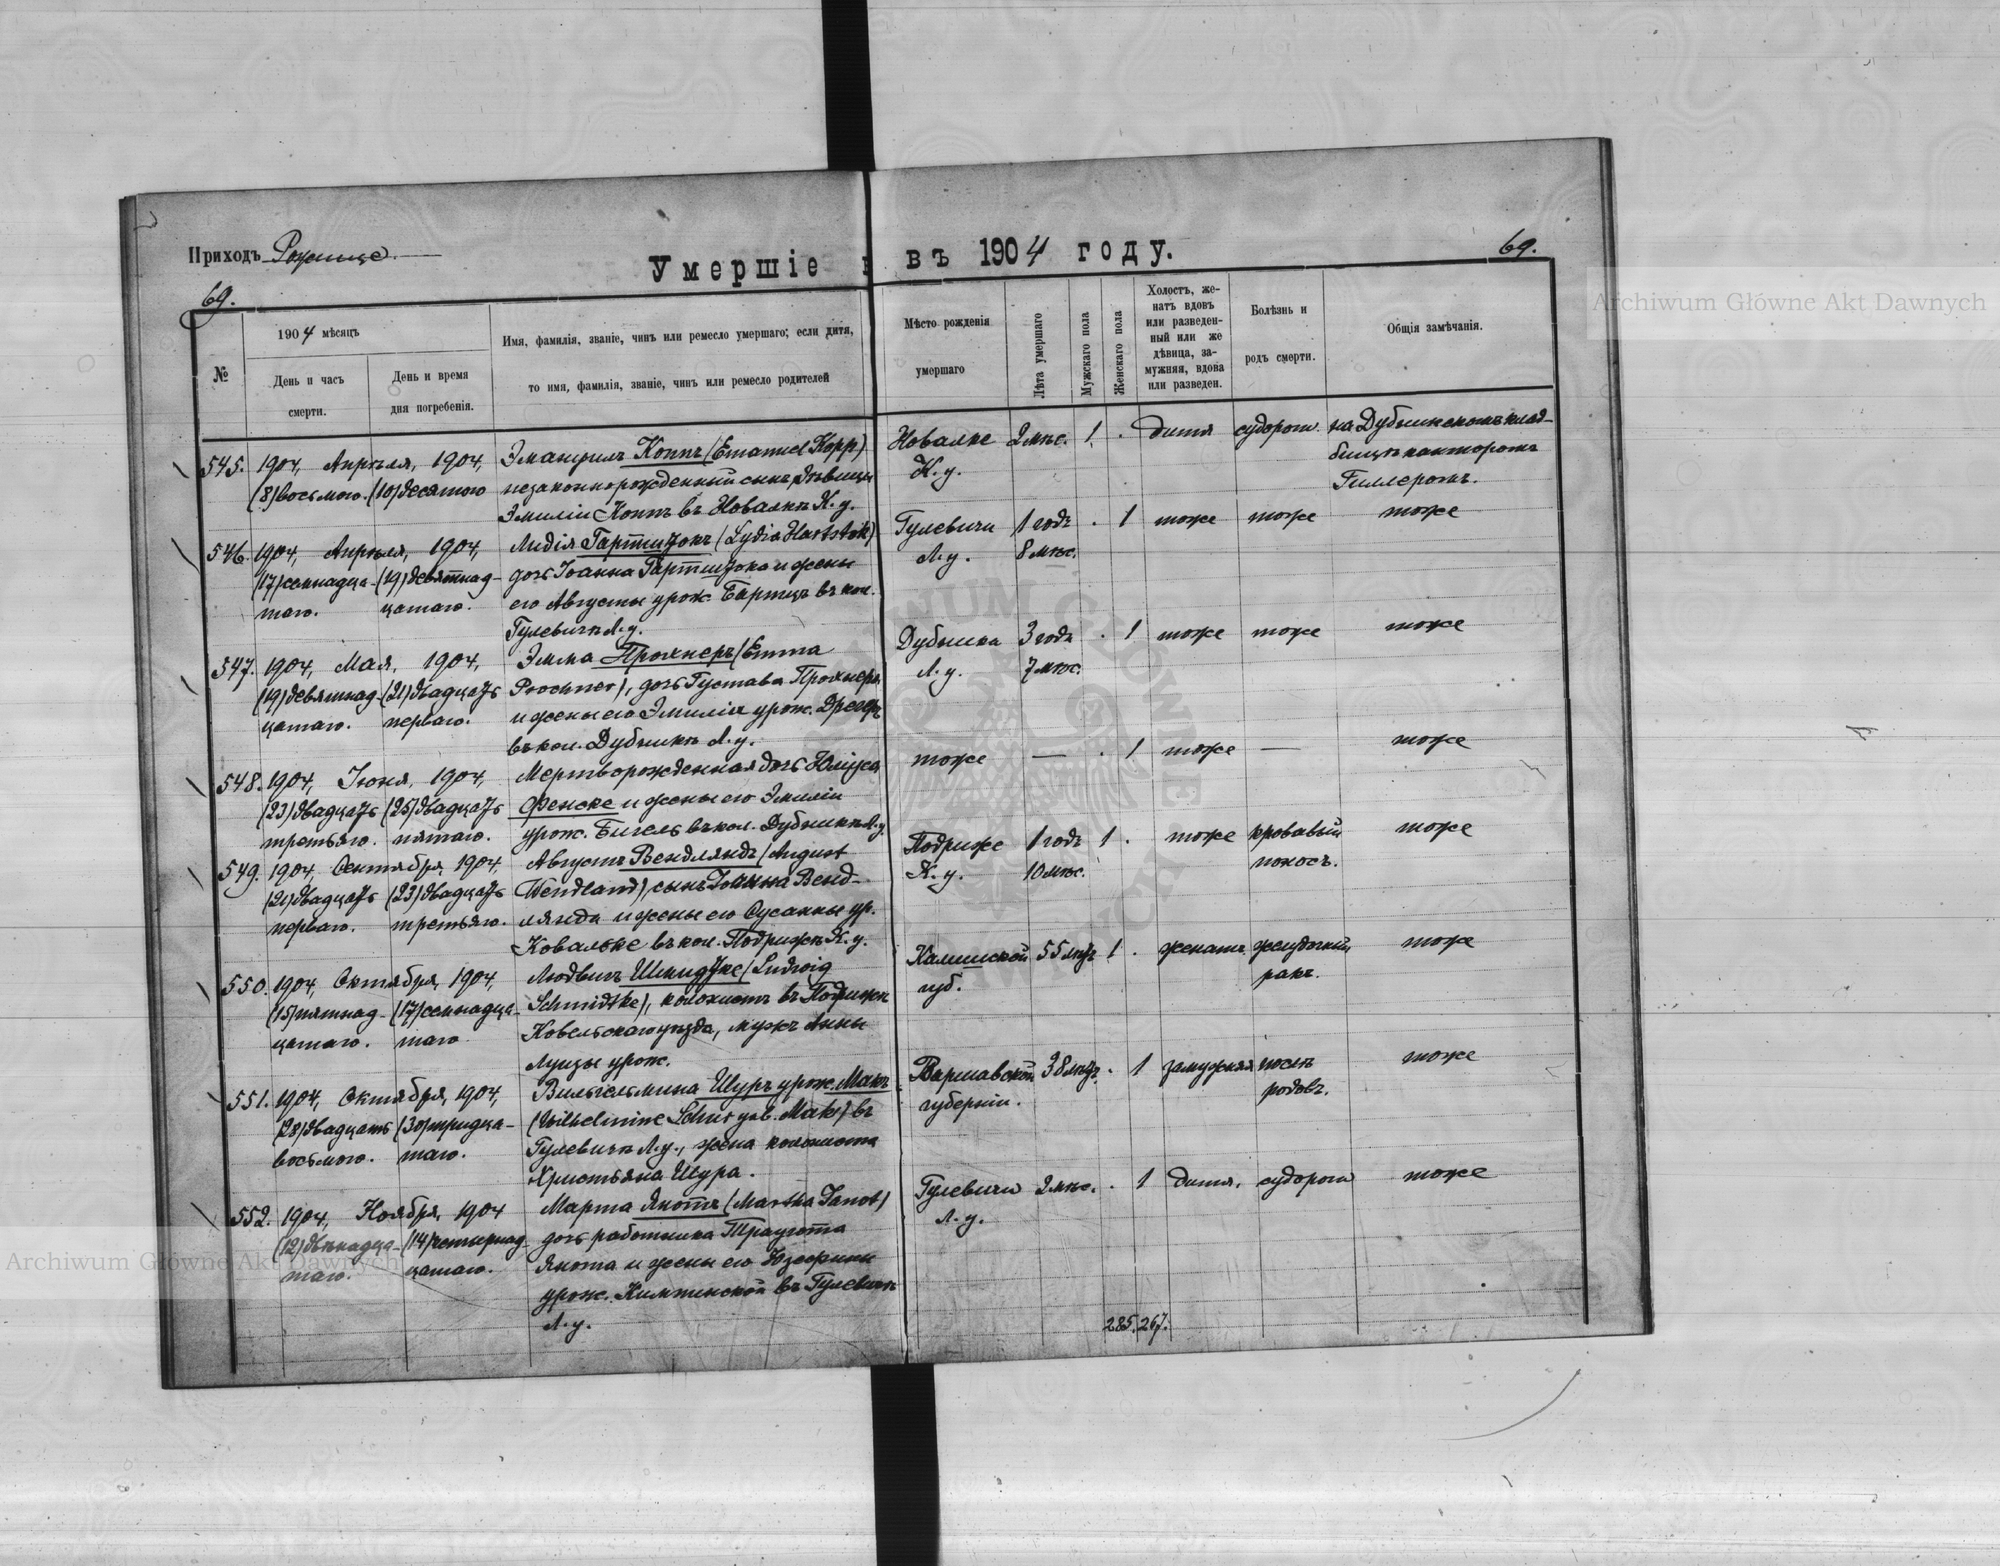 Приходъ Рожище.
Умершіе въ 1904 году.
69.
69.
№
1904 мѣсяцъ
День и часъ смерти.
День и время дня погребенія.
Имя, фамилія, званіе, чинъ или ремесло умершаго; если дитя,
то имя, фамилія, званіе, чинъ или ремесло родителей
Мѣсто рожденія умершаго
Лѣта умершаго
Мужскаго пола
Женскаго пола
Холостъ, же-
натъ вдовъ
или разведен-
ный или же
дѣвица, за-
мужняя, вдова
или разведен.
Болѣзнь и родъ смерти.
Общія замѣчанія.
545. 1904, Апрѣля, 1904, Эмануилъ Коппъ (Emanuel Kopp) Новалке 2 мѣс. 1 . дитя судороги. на Дубнинскомъ клад-
(8) восьмого. (10) десятого незаконнорожденный сынъ дѣвицы К. у. бищѣ канторомъ
Эмиліи Коппъ въ Новалкѣ К. у. Гиллеромъ.
546. 1904, Апрѣля, 1904, Лидія Гартштокъ (Lydia Hartstok) Гулевичи 1 годъ . 1 тоже тоже тоже
(17) семнадца- (19) девятнад- дочь Іоанна Гартштока и жены Л. у. 8 мѣс.
таго. цатаго. его Августы урож. Бартцъ въ кол.
Гулевичи Л. у.
547. 1904, Мая, 1904, Эмма Прохнеръ (Emma Дубники 3 года . 1 тоже тоже тоже
(19) девятнад- (21) двадцать Prochner), дочь Густава Прохнера Л. у. 7 мѣс.
цатаго. перваго. и жены его Эмиліи урож.
въ кол. Дубникѣ Л. у.
548. 1904, Іюня, 1904, Мертворожденная дочь Юліуса тоже — . 1 тоже — тоже
(23) двадцать (25) двадцать Фенске и жены его Эмиліи
третьяго. пятаго. урож. Бигель въ кол. Дубникѣ Л. у.
549. 1904, Сентября, 1904, Августъ Вендляндъ (August Подриже 1 годъ 1 . тоже кровавый тоже
(21) двадцать (23) двадцать Wendland), сынъ Іоанна Венд- К. у. 10 мѣс. поносъ.
перваго. третьяго. лянда и жены его Сусанны ур.
Ковальке въ кол. Подрижѣ К. у.
550. 1904, Октября, 1904, Людвигъ Шмидтке (Ludwig Калишской 55 лѣтъ 1 . женатъ желудочный тоже
(15) пятнад- (17) семнадца- Schmidtke), колонистъ въ Подрижѣ губ. ракъ.
цатаго. таго Ковельскаго уѣзда, мужъ Анны
Луизы урож.
551. 1904, Октября, 1904, Вильгельмина Шуръ урож. Макъ Варшавской 38 лѣтъ . 1 замужняя послѣ тоже
(28) двадцать (30) тридца- (Wilhelmine Schur geb. Mak) въ губерніи. родовъ.
восьмого. таго. Гулевичѣ Л. у., жена колониста
Христьяна Шура.
552. 1904, Ноября, 1904 Марта Янотъ (Martha Janot) Гулевичи 2 мѣс. . 1 дитя. судороги тоже
(12) двѣнадца- (14) четырнад- дочь работника Траугота Л. у.
таго. цатаго. Янота и жены его Юзефины
урож. въ Гулевичѣ
Л. у.
285. 267.
Archiwum Główne Akt Dawnych
Archiwum Główne Akt Dawnych